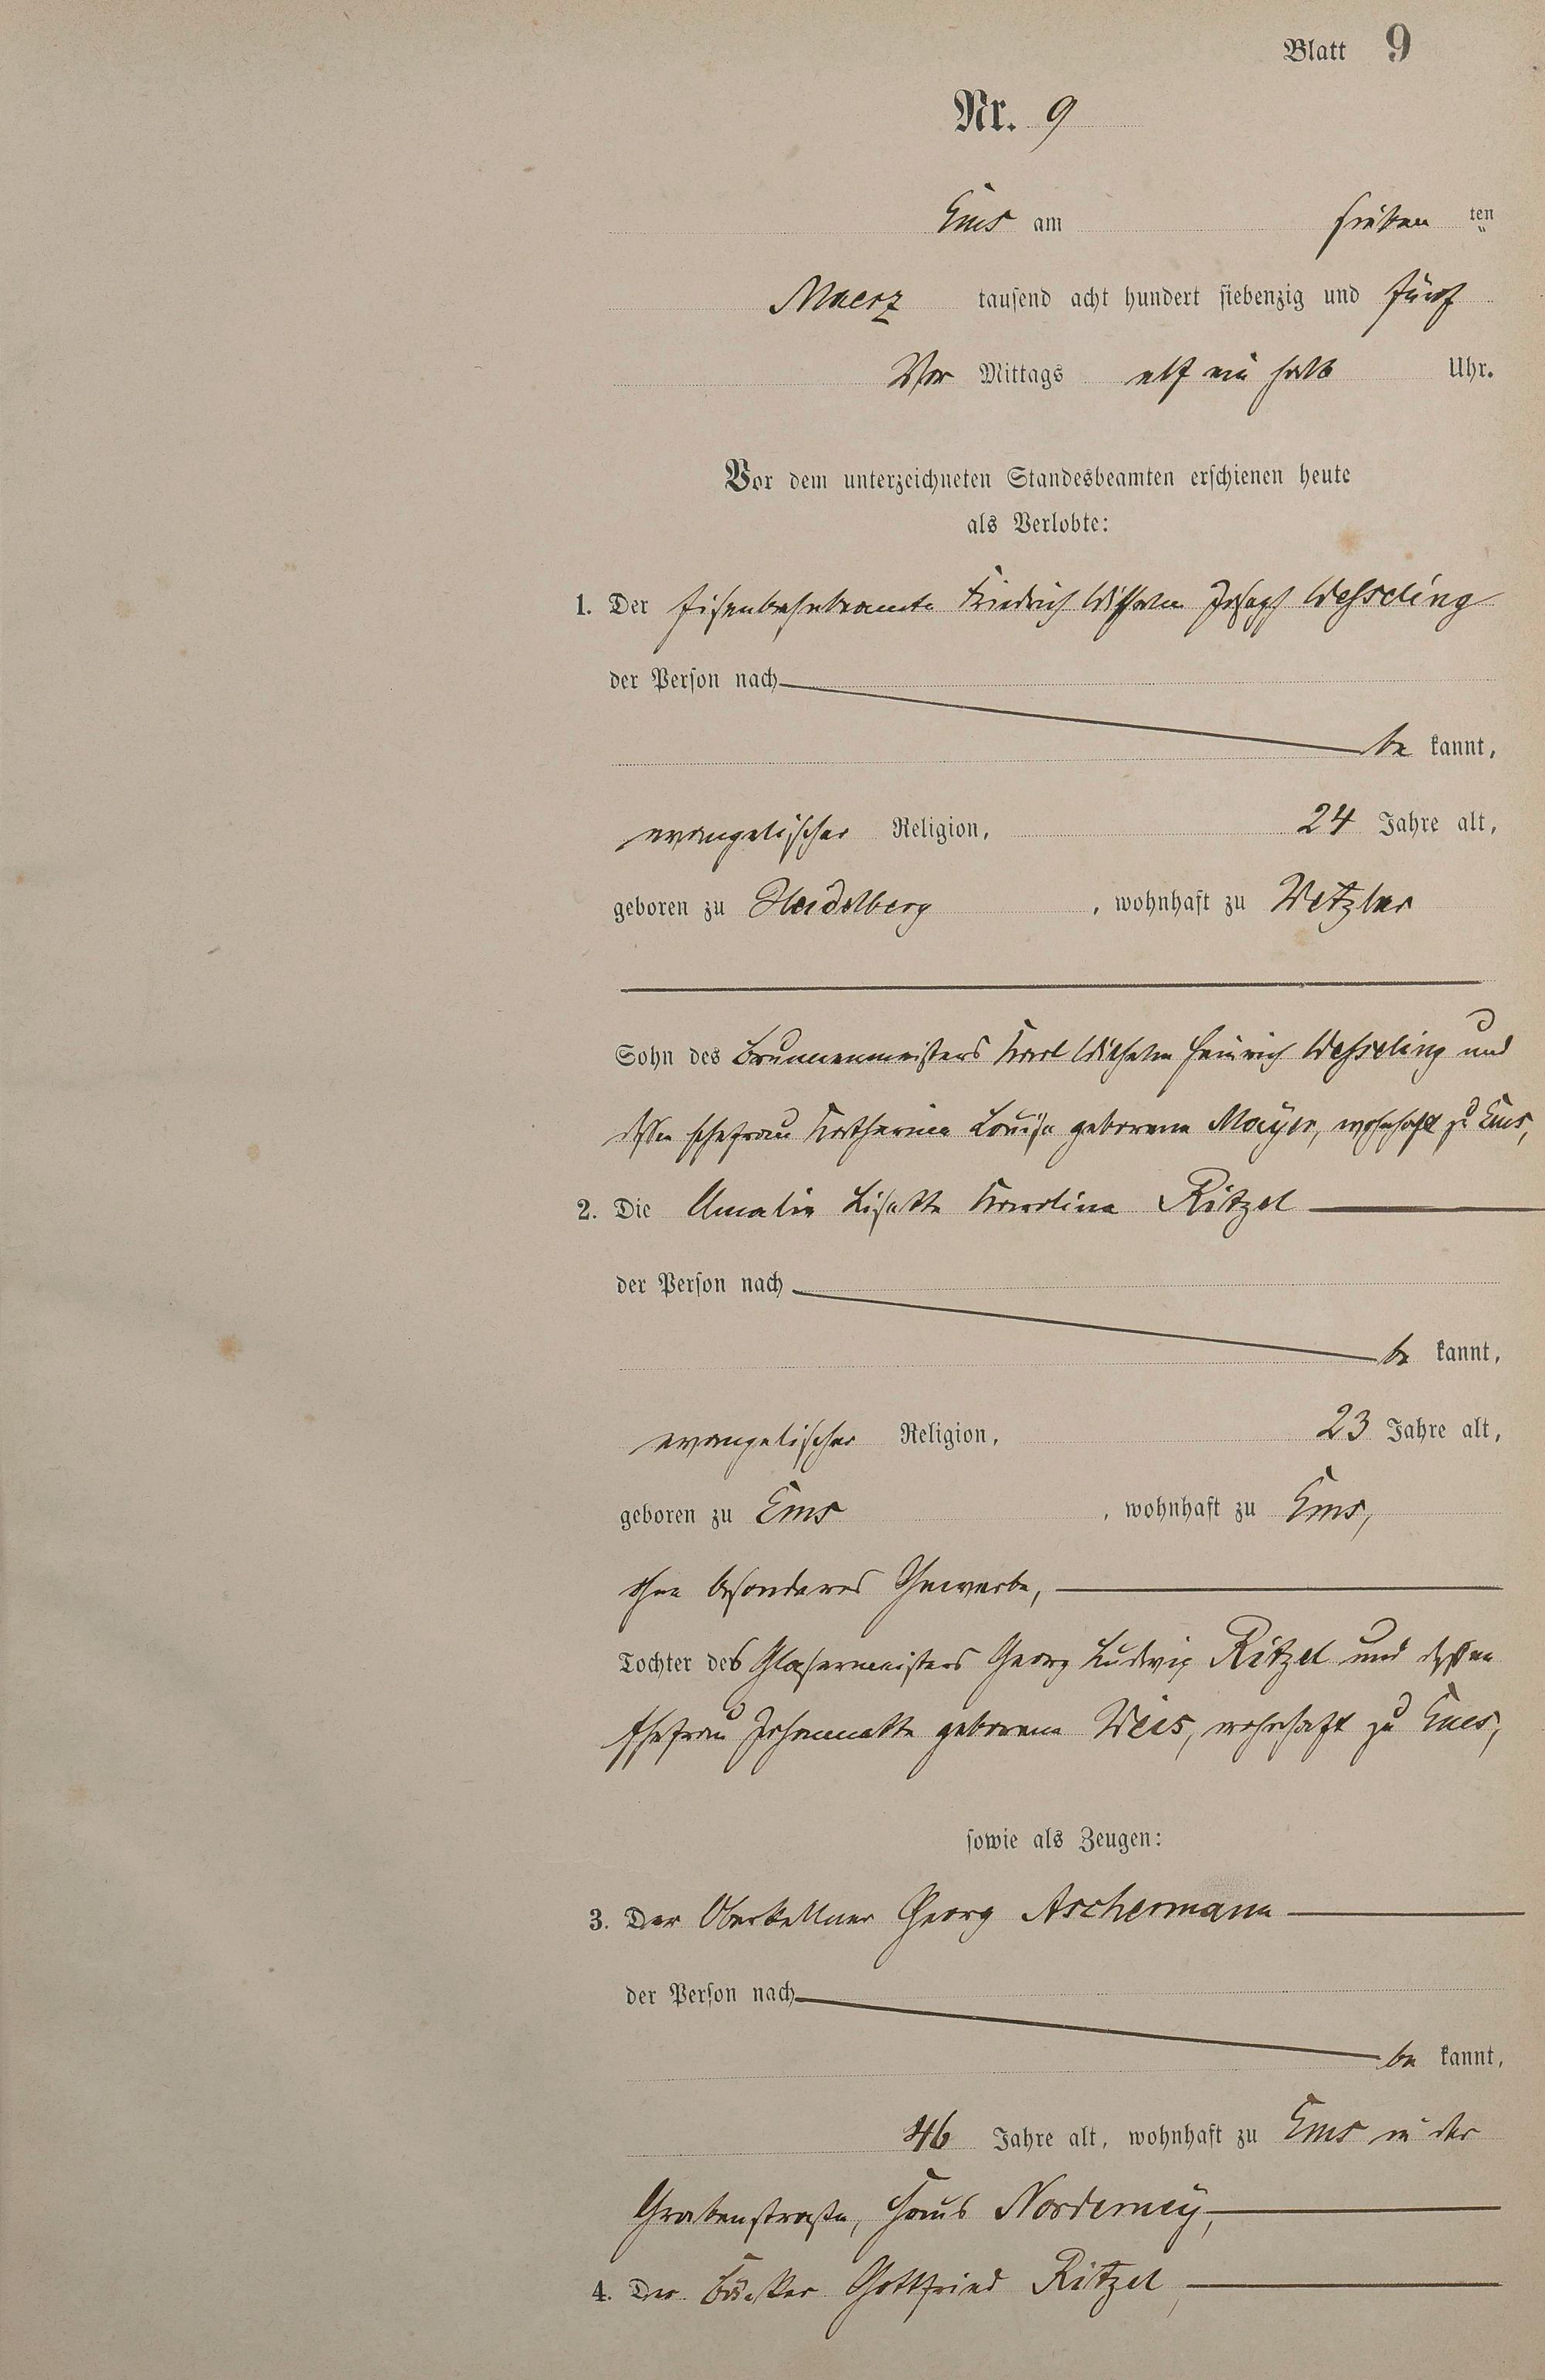 Blatt 9
Nr. 9
Ems am siebten ten
Maerz tausend acht hundert siebenzig und fünf
Vor Mittags elf ein halb Uhr.
Vor dem unterzeichneten Standesbeamten erschienen heute
als Verlobte:
1. Der Eisenbahnbeamte Friedrich Wilhelm Joseph Wesseling
der Person nach
be kannt,
evangelischer Religion, 24 Jahre alt,
geboren zu Heidelberg, wohnhaft zu Wetzlar
Sohn des Brunnenmeisters Karl Wilhelm Heinrich Wesseling und
dessen Ehefrau Katharina Louise geborene Mayer, wohnhaft zu Ems,
2. Die Amalie Lisette Karolina Ritzel
der Person nach
be kannt,
evangelischer Religion, 23 Jahre alt,
geboren zu Ems, wohnhaft zu Ems,
ohne besonderes Gewerbe,
Tochter des Glasermeisters Georg Ludwig Ritzel und dessen
Ehefrau Johannette geborene Weis, wohnhaft zu Ems,
sowie als Zeugen:
3. Der Oberkellner Georg Aschermann
der Person nach
be kannt,
46 Jahre alt, wohnhaft zu Ems in der
Grabenstraße, Haus Norderney,
4. Der Bäcker Gottfried Ritzel,